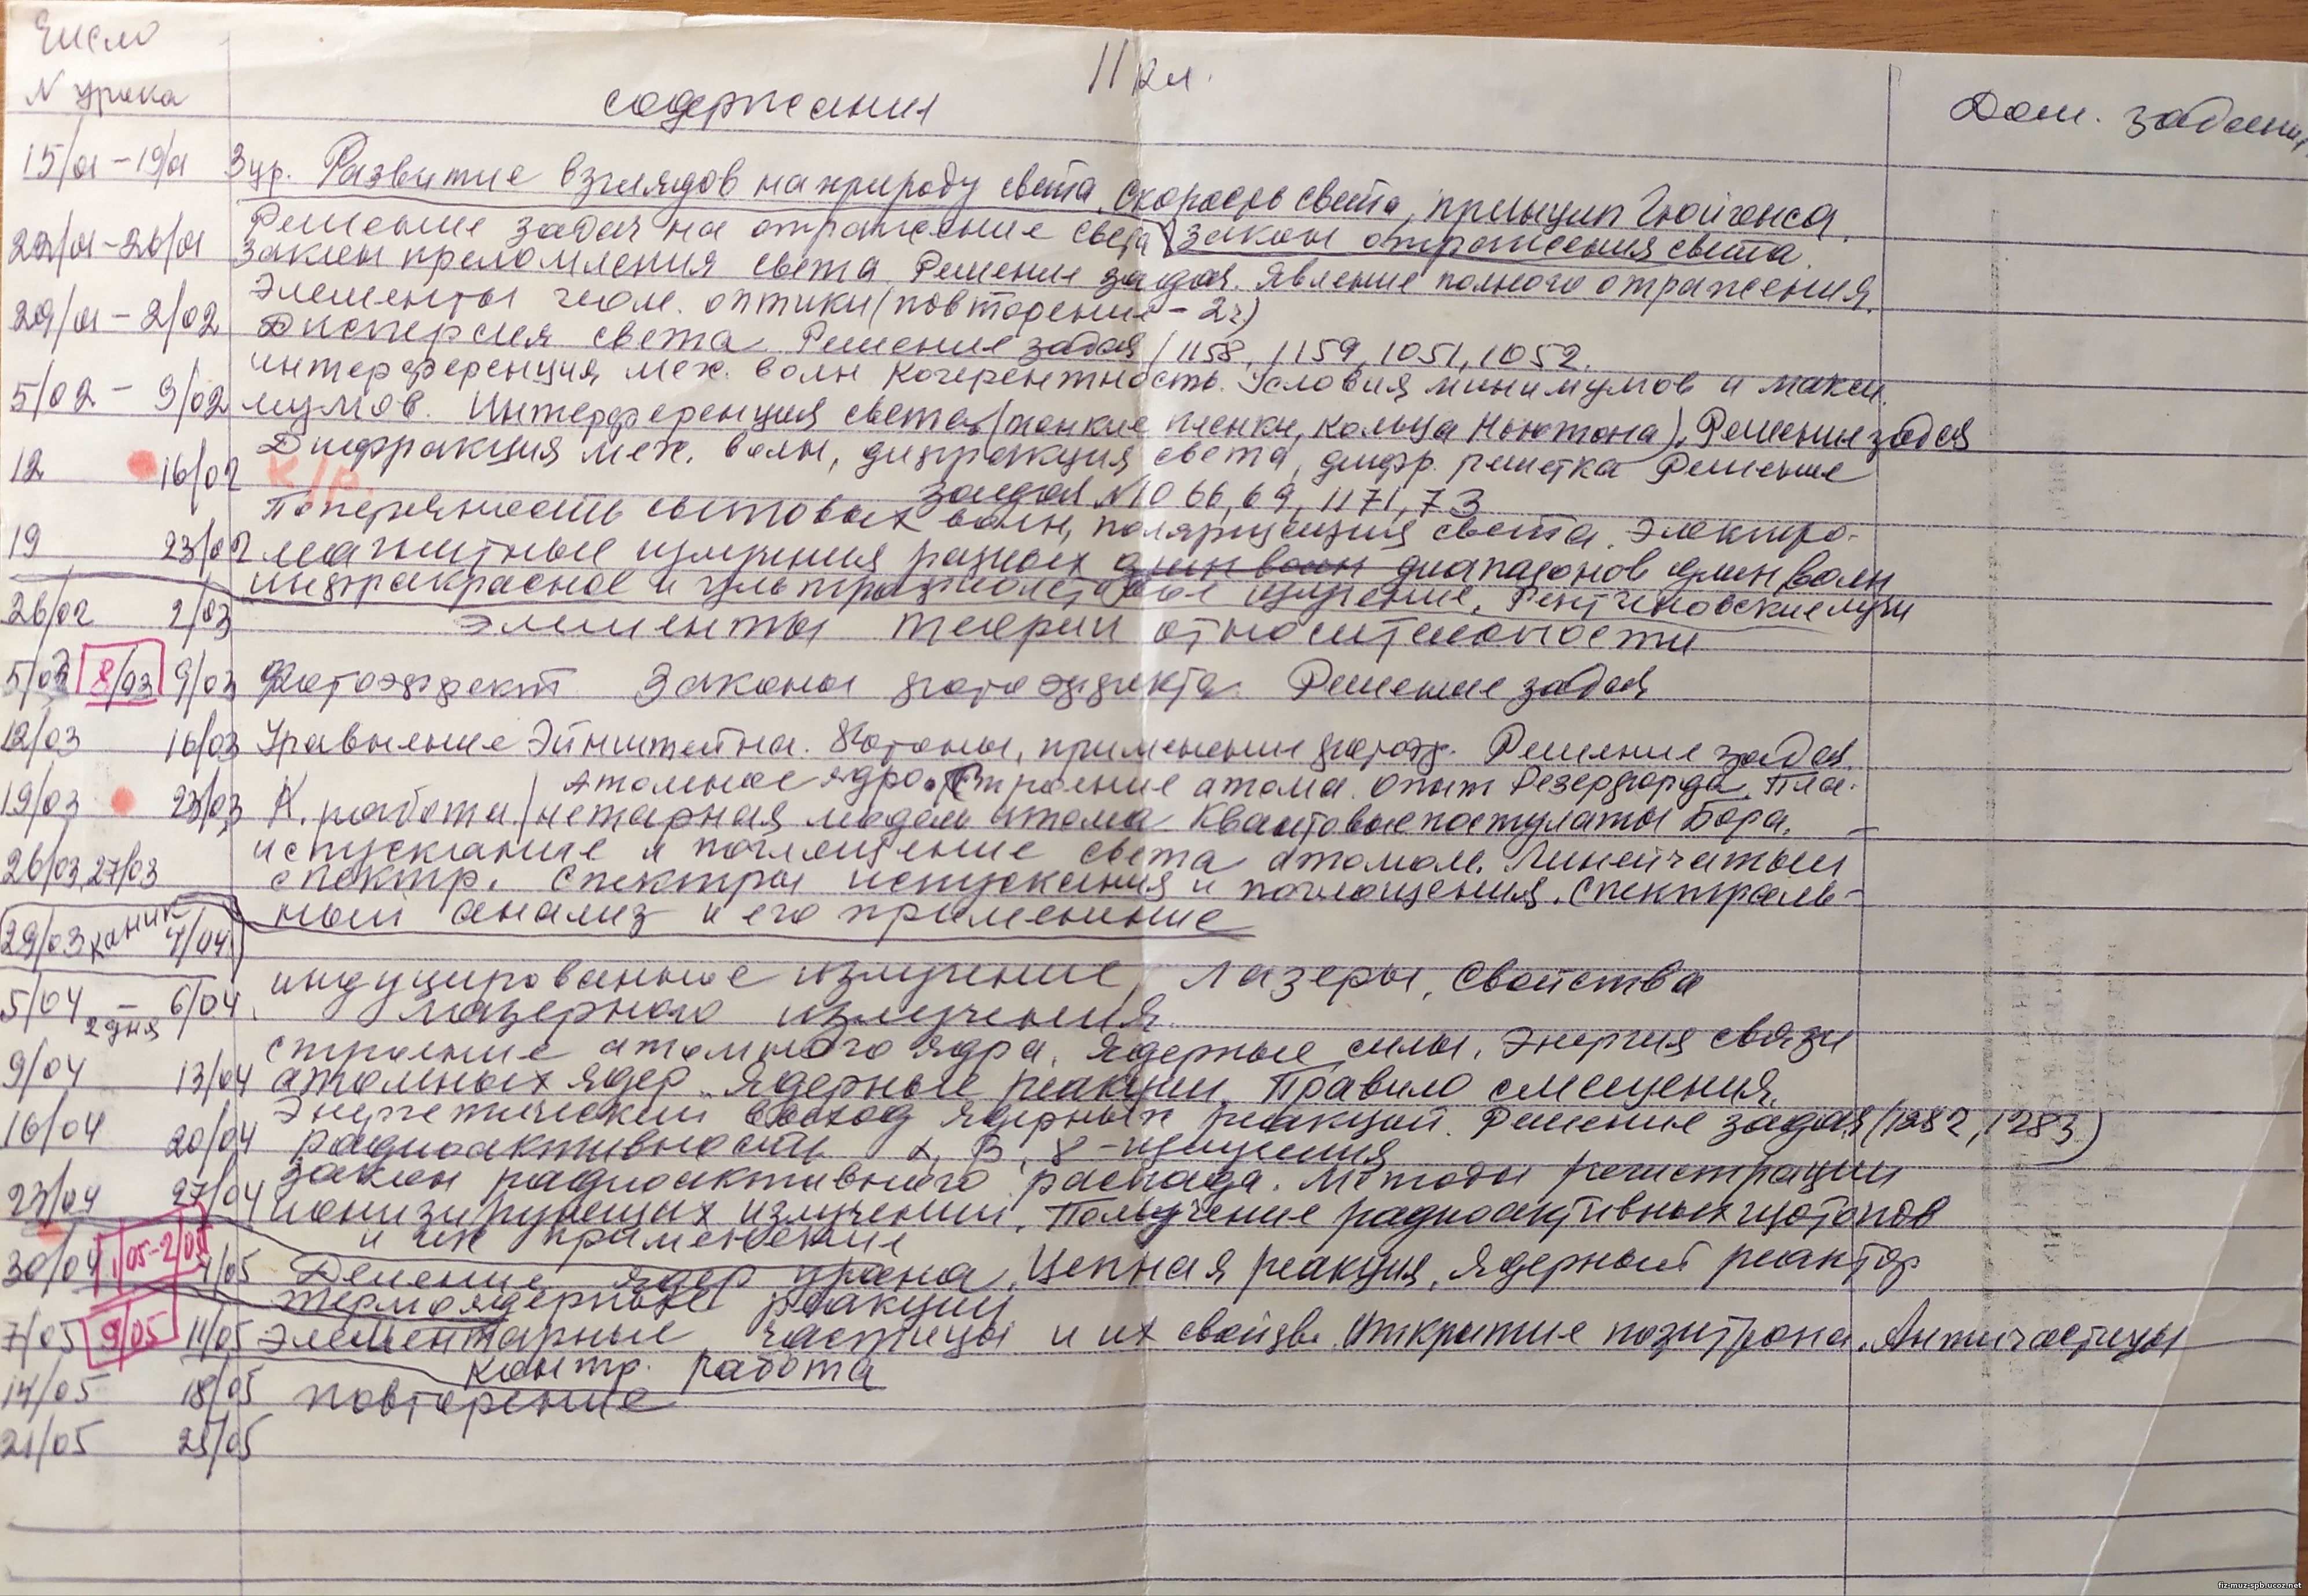 Число
N урока
11 кл.
содержания
Дом. задания
15/01 – 19/01 3 ур. Развитие взглядов на природу света. Скорость света, принцип Гюйгенса.
Решение задач на отражение света закон отражения света.
22/01 – 26/01 Закон преломления света Решение задач. Явление полного отражения.
Элементы геом. оптики (повторение – 2ч)
29/01 – 2/02 Дисперсия света. Решение задач / 1158, 1159, 1051, 1052.
интерференция мех. волн Когерентность. Условия минимумов и макси
5/02 – 9/02 мумов. Интерференция света (тонкие пленки, кольца Ньютона). Решение задач
Дифракция мех. волн, дифракция света, дифр. решетка Решение
12 16/02 К/р.
задач N1066, 69, 1171, 73
Поперечность световых волн, поляризация света. Электро-
19 23/02 магнитные излучения разных длин волн диапазонов длин волн
инфракрасное и ультрафиолетовое излучение. Рентгеновские лучи
26/02 2/03 Элементы теории относительности
5/03 8/03 9/03 Фотоэффект Законы фотоэффекта. Решение задач
12/03 16/03 Уравнение Эйнштейна. Фотоны, применение фотоэф. Решение задач.
Атомное ядро. Строение атома. Опыт Резерфорда. Пла-
19/03 23/03 К. работа / нетарная модель атома Квантовые постулаты Бора.
испускание и поглощение света атомом. Линейчатый
26/03, 27/03 спектр. Спектры испускания и поглощения. Спектраль-
ный анализ и его применение
29/03 каник 4/04
индуцированное излучение, Лазеры, Свойства
5/04 – 6/04 лазерного излучения.
2 дня
строение атомного ядра. Ядерные силы. Энергия связи
9/04 13/04 атомных ядер. Ядерные реакции. Правило смещения.
Энергетический выход ядерных реакций. Решение задач (1282, 1283)
16/04 20/04 радиоактивность α, β, γ – излучения
закон радиоактивного распада. Методы регистрации
23/04 27/04 ионизирующих излучений. Получение радиоактивных изотопов
и их применение
30/04 1/05–2/05 4/05 Деление ядер урана. Цепная реакция. Ядерный реактор
термоядерные реакции
7/05 9/05 11/05 Элементарные частицы и их свойств. Открытие позитрона. Античастицы
контр. работа
14/05 18/05 повторение
21/05 25/05
fiz-muz-spb.ucoz.net